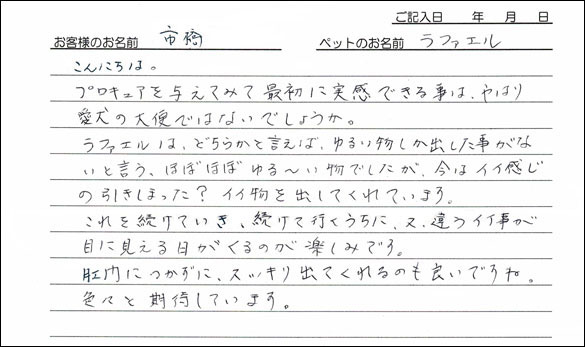 ご記入日　　年　月　日
お客様のお名前　市橋　ペットのお名前　ラファエル
こんにちは。
プロキュアを与えてみて最初に実感できる事は、やはり
愛犬の大便ではないでしょうか。
ラファエルは、どちらかと言えば、ゆるい物しか出した事がな
いと言う、ほぼほぼゆる～い物でしたが、今はイイ感じ
の引きしまった？イイ物を出してくれています。
これを続けていき、続けて行くうちに、又、違うイイ事が
目に見える日がくるのが楽しみです。
肛門につかずに、スッキリ出てくれるのも良いですね。
色々と期待しています。